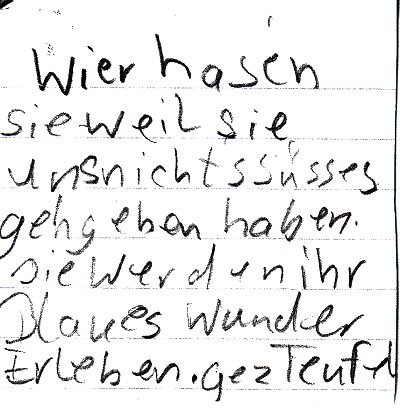 Wier hasen
sie weil sie
uns nichts süsses
gehgeben haben.
sie werden ihr
Blaues wunder
Erleben. gez Teufel